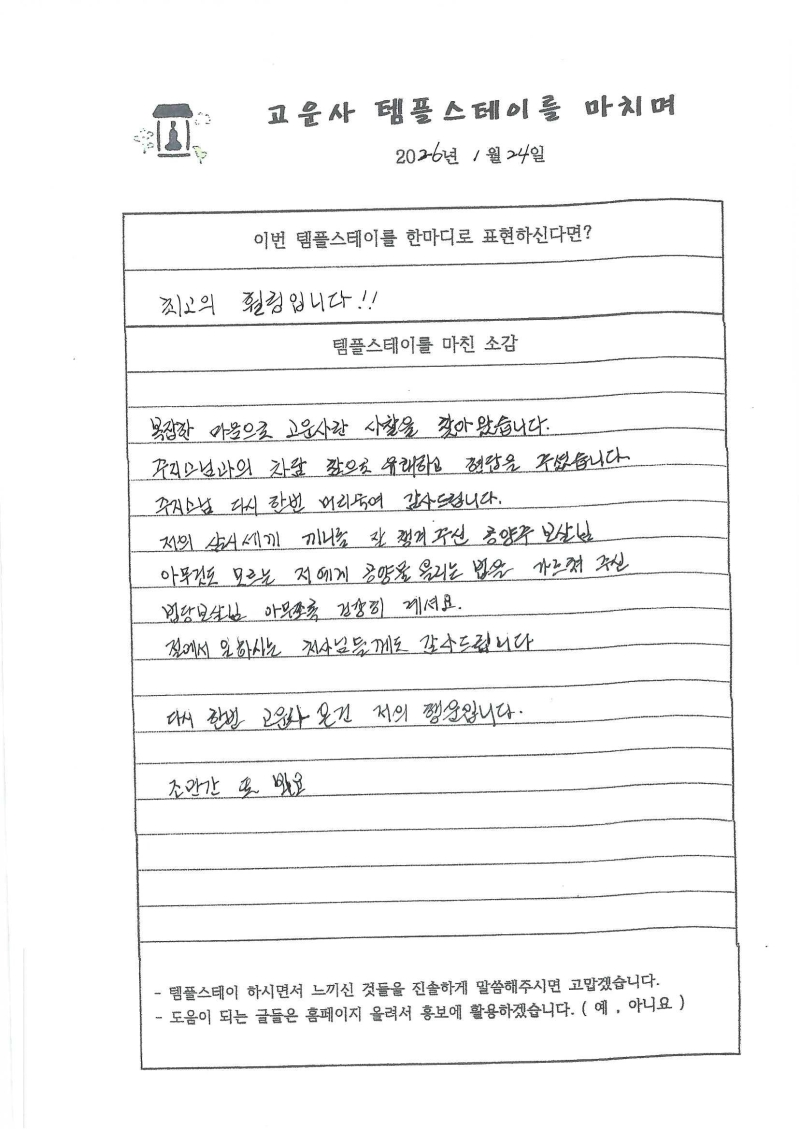 고운사 템플스테이를 마치며
2026년 1월 24일
이번 템플스테이를 한마디로 표현하신다면?
최고의 휠링입니다!!
템플스테이를 마친 소감
복잡한 마음으로 고운사란 사찰을 찾아 왔습니다.
주지스님과의 차담 참으로 유쾌하고 현답을 주셨습니다.
주지스님 다시 한번 머리숙여 감사드립니다.
저의 삼시세끼 끼니를 잘 챙겨주신 공양주 보살님
아무것도 모르는 저에게 공양을 올리는 법을 가르쳐 주신
법당보살님 아무쪼록 건강히 계셔요.
절에서 일하시는 처사님들께도 감사드립니다
다시 한번 고운사 온건 저의 행운입니다.
조만간 또 봬요
- 템플스테이 하시면서 느끼신 것들을 진솔하게 말씀해주시면 고맙겠습니다.
- 도움이 되는 글들은 홈페이지 올려서 홍보에 활용하겠습니다. ( 예 , 아니요 )